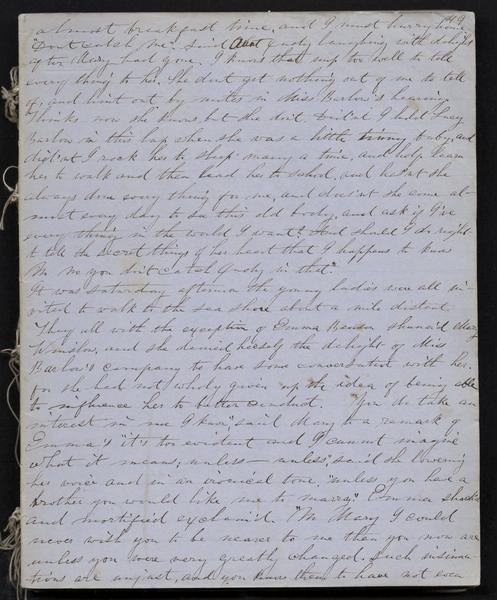 149
almost breakfast time, and I must hurry home
Don't catch me" said Aunt Quohy laughing with delight
after Mary had gone. I knows that imp too well to tell
every thing to her. She dont get nothing out of me to tell
of, and hint out by mites in Miss Barlow's hearing
Thinks now she knows but she don't. Did'nt I hold Lucy
Barlow in this lap when she was a little tinny baby, and
did'nt I rock her to sleep many a time, and help learn
her to walk and then lead her to school, and has'nt she
always done every thing for me, and does'nt she come al-
most every day to see this old body, and ask if I've
every thing in the world I want? And should I do right
to tell the secret things of her heart that I happens to know
No no you don't catch Quohy in that."
It was Saturday afternoon the young ladies were all in-
vited to walk to the sea shore about a mile distant.
They all with the exception of Emma Benson shunn'd Mary
Winslow, and she denied herself the delight of Miss
Barlow's company to have some conversation with her.
for she had not wholy given up the idea of being able
to influence her to better conduct. "You do take an
interest in me I know," said Mary to a remark of
Emma's "it's too evident and I cannot imagine
what it means; unless— unless," said she lowering
her voice and in an ironical tone, "unless you have a
brother you would like me to marry," Emma shocked
and mortified exclaim'd. "No Mary I could
never wish you to be nearer to me than you now are
unless you were very greatly changed. Such insinua-
tions are unjust, and you know them to have not even